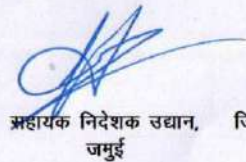 सहायक निदेशक उद्यान, जि
जमुई